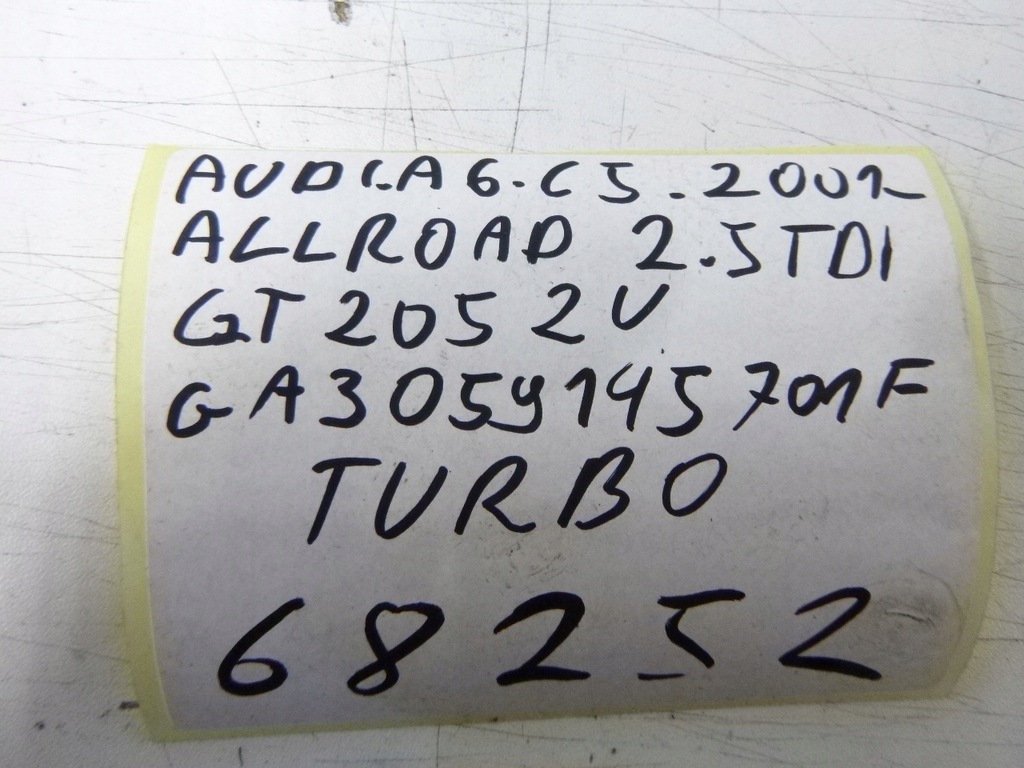 AUDI.A6.C5.2001r
ALLROAD 2.5TDI
GT2052V
GA3059145701F
TURBO
68252